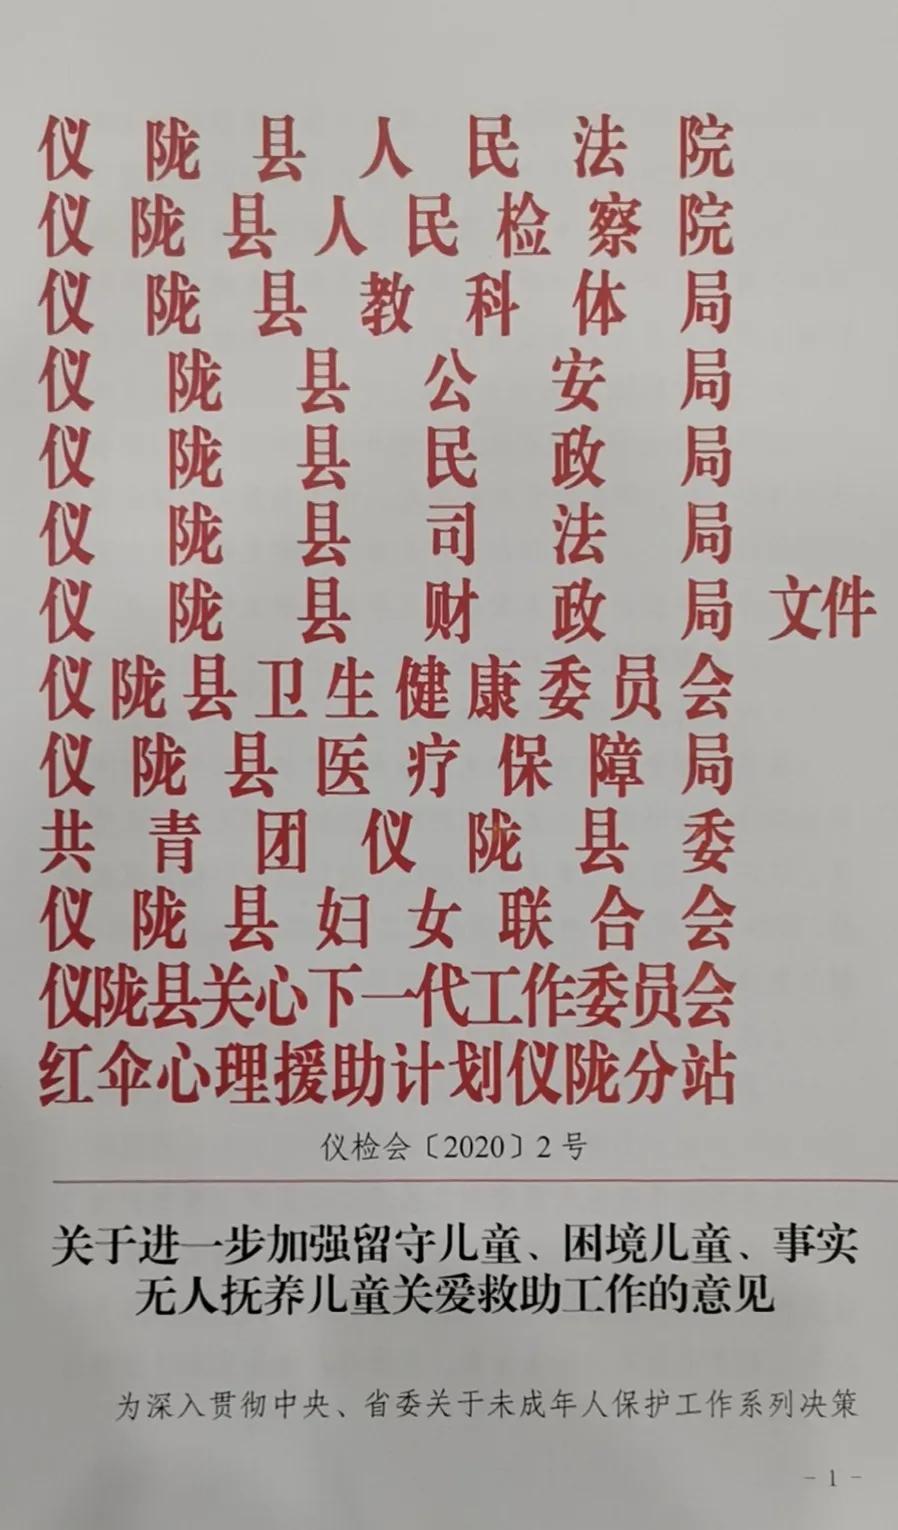 仪陇县人民法院
仪陇县人民检察院
仪陇县教科体局
仪陇县公安局
仪陇县民政局
仪陇县司法局
仪陇县财政局 文件
仪陇县卫生健康委员会
仪陇县医疗保障局
共青团仪陇县委
仪陇县妇女联合会
仪陇县关心下一代工作委员会
红伞心理援助计划仪陇分站
仪检会〔2020〕2号
关于进一步加强留守儿童、困境儿童、事实
无人抚养儿童关爱救助工作的意见
为深入贯彻中央、省委关于未成年人保护工作系列决策
- 1 -